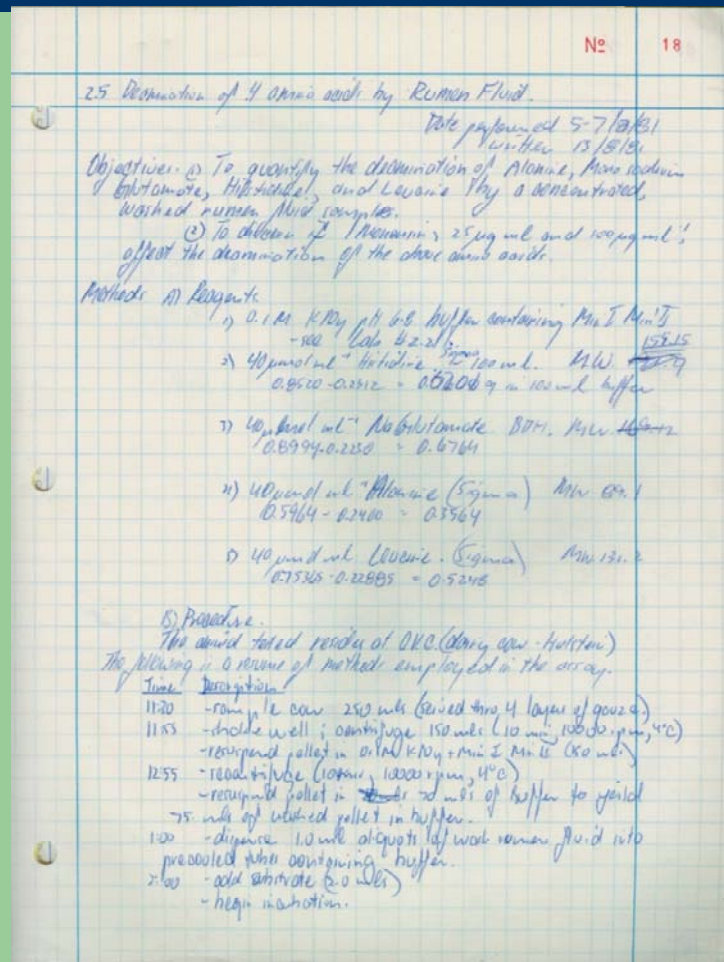 Nº 18
25 Deamination of 4 amino acids by Rumen Fluid.
Date performed 5-7/8/81
written 13/8/81
Objectives. ① To quantify the deamination of Alanine, Mono sodium
Glutamate, Histidine, and Leucine by a concentrated,
washed rumen fluid samples.
② To discern if Monensin, 25 µg ml and 100 µg ml⁻¹,
effect the deamination of the above amino acids.
Methods A) Reagents
1) 0.1M KPO4 pH 6.8 buffer containing Min I Min II
- see Lab
2) 40 µmol ml⁻¹ Histidine Sigma 100 ml. MW. 155.15
0.8520-0.2312 = 0.6208 g in 100 ml buffer
3) 40 µmol ml⁻¹ NaGlutamate BDH. MW
0.8994-0.2230 = 0.6764
4) 40 µmol ml⁻¹ Alanine (Sigma) MW 89.1
0.5964-0.2400 = 0.3564
5) 40 µmol ml Leucine. (Sigma) MW. 131.2
0.75365-0.22885 = 0.5248
B) Procedure.
The animal tested resides at (dairy cow - Holstein)
The following is a resume of methods employed in the assay.
Time Description
11:20 - sample cow 250 mls (seived thro, 4 layers of gauze)
11:55 - shake well; centrifuge 150 mls (10 min, 10000 rpm, 4°C)
- resuspend pellet in 0.1M KPO4 + Min I Min II (150 mls)
12:55 - recentrifuge (10 min, 10000 rpm, 4°C)
- resuspend pellet in 70 mls of buffer to yeild
75 mls of washed pellet in buffer.
1:00 - dispense 1.0 ml aliquots of wash rumen fluid into
precooled tubes containing buffer.
2:00 - add substrate (2.0 mls)
- begin incubation.